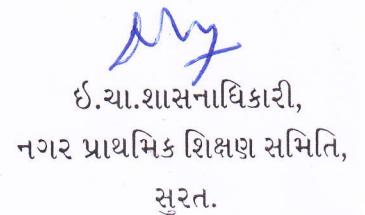 ઇ.ચા.શાસનાધિકારી,
નગર પ્રાથમિક શિક્ષણ સમિતિ,
સુરત.